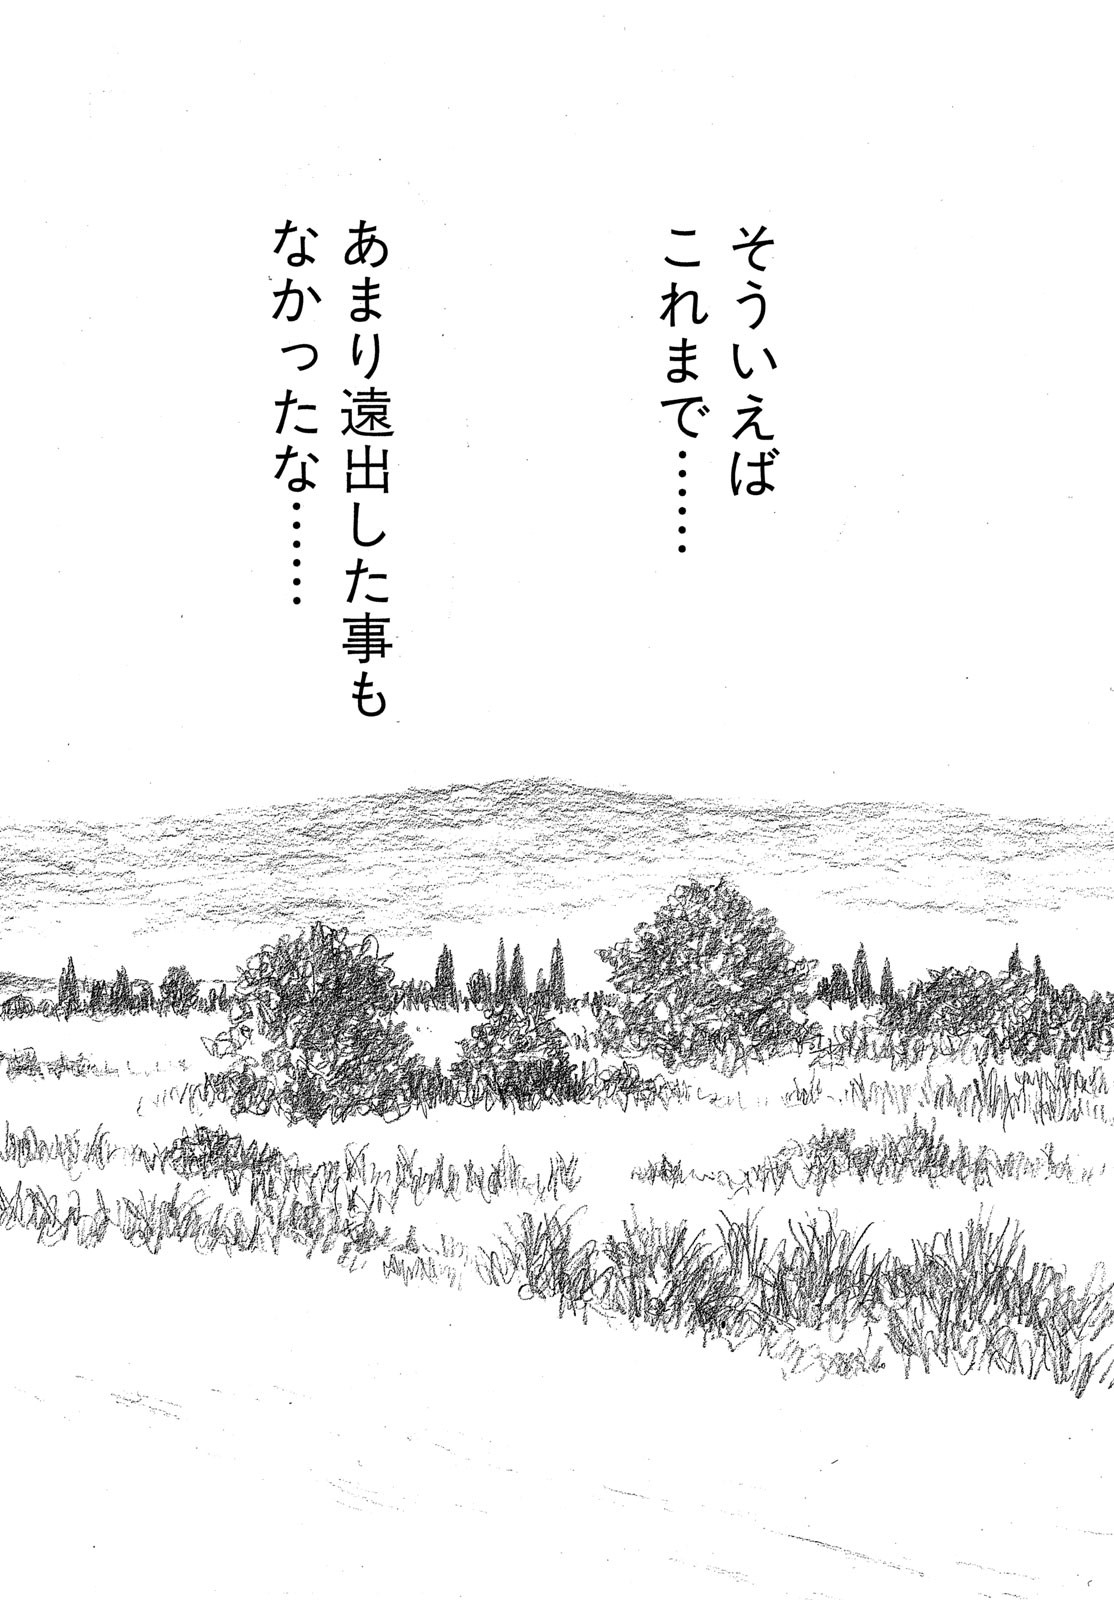 そういえば
これまで……
あまり遠出した事も
なかったな……